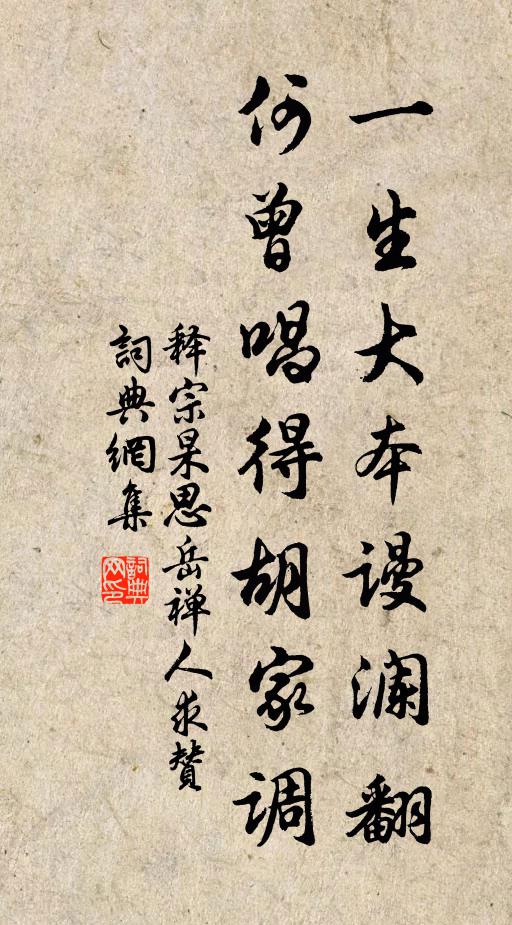 一生大本谩澜翻
何曾唱得胡家调
释宗杲思岳禅人求赞
词典網集
詞典网印